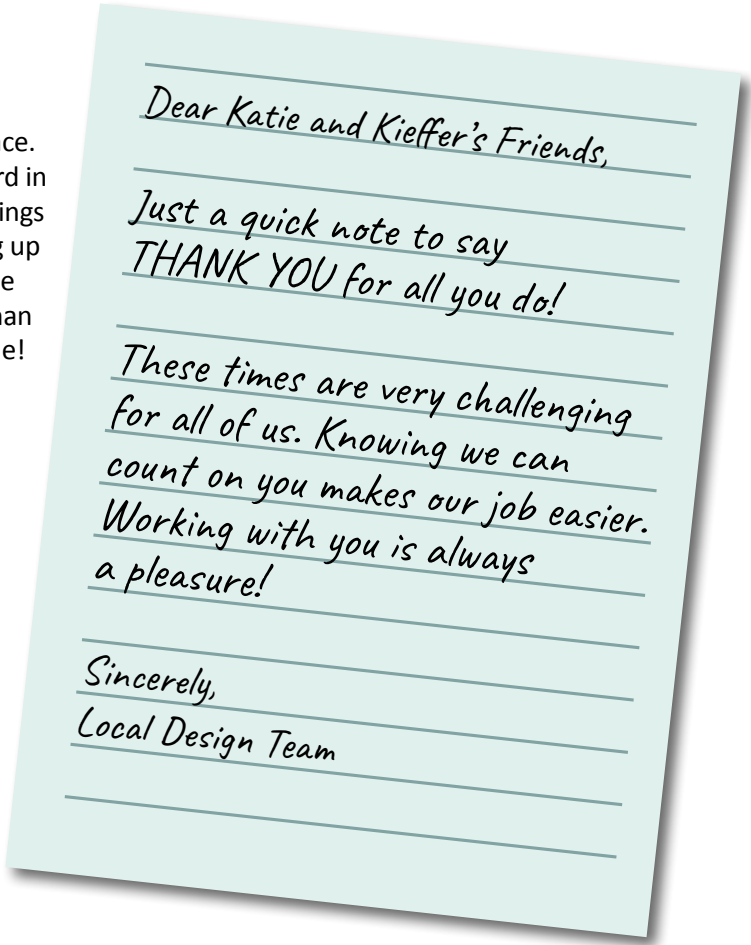 Dear Katie and Kieffer's Friends,
Just a quick note to say
THANK YOU for all you do!
These times are very challenging
for all of us. Knowing we can
count on you makes our job easier.
Working with you is always
a pleasure!
Sincerely,
Local Design Team
in
up